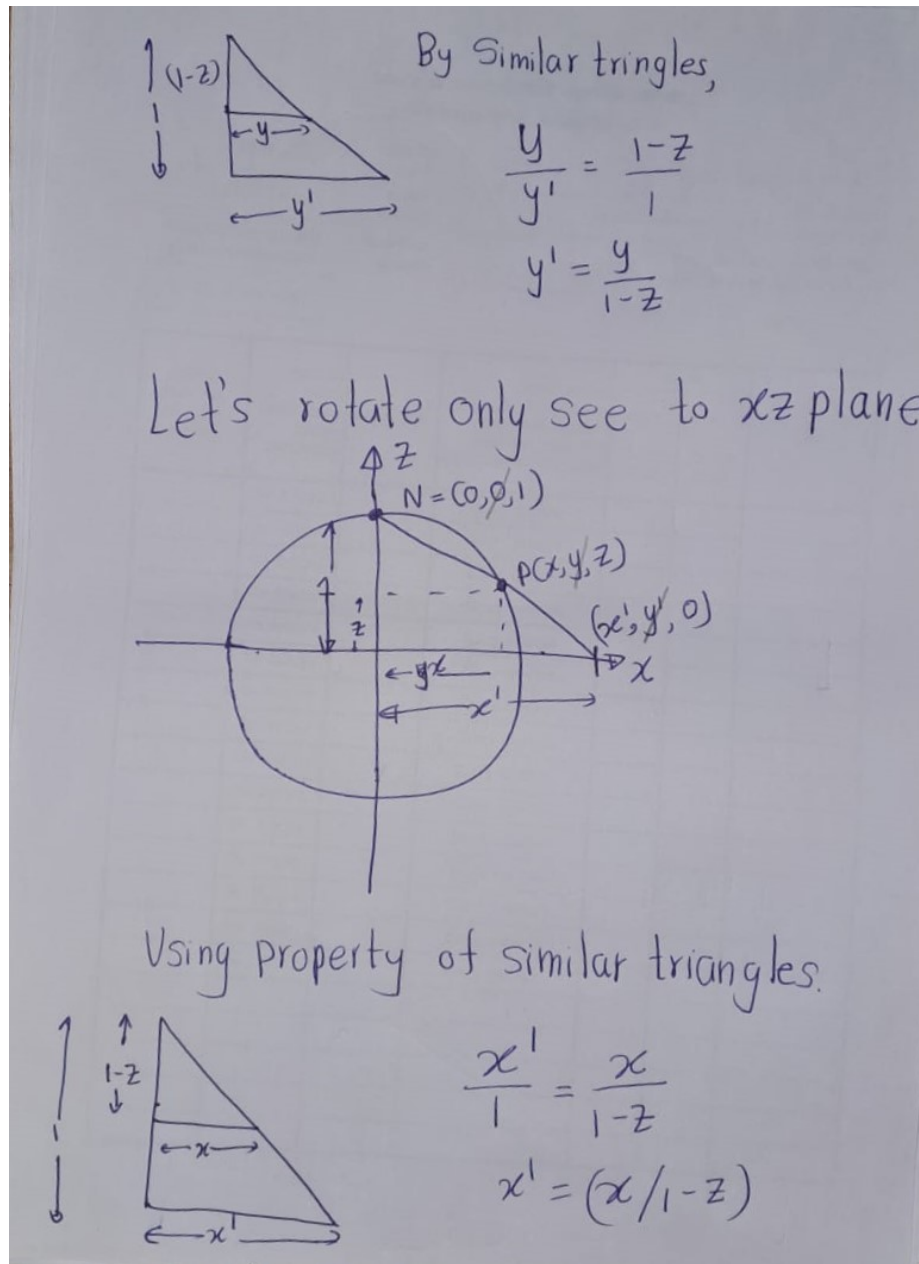 (1-z)
1
y
y'
By Similar tringles,
y/y' = 1-z/1
y' = y/1-z
Let's rotate only see to xz plane
z
N = (0,0,1)
P(x,y,z)
(x',y',0)
1
z
x
x
x'
Using property of similar triangles.
1-z
1
x
x'
x'/1 = x/1-z
x' = (x/1-z)